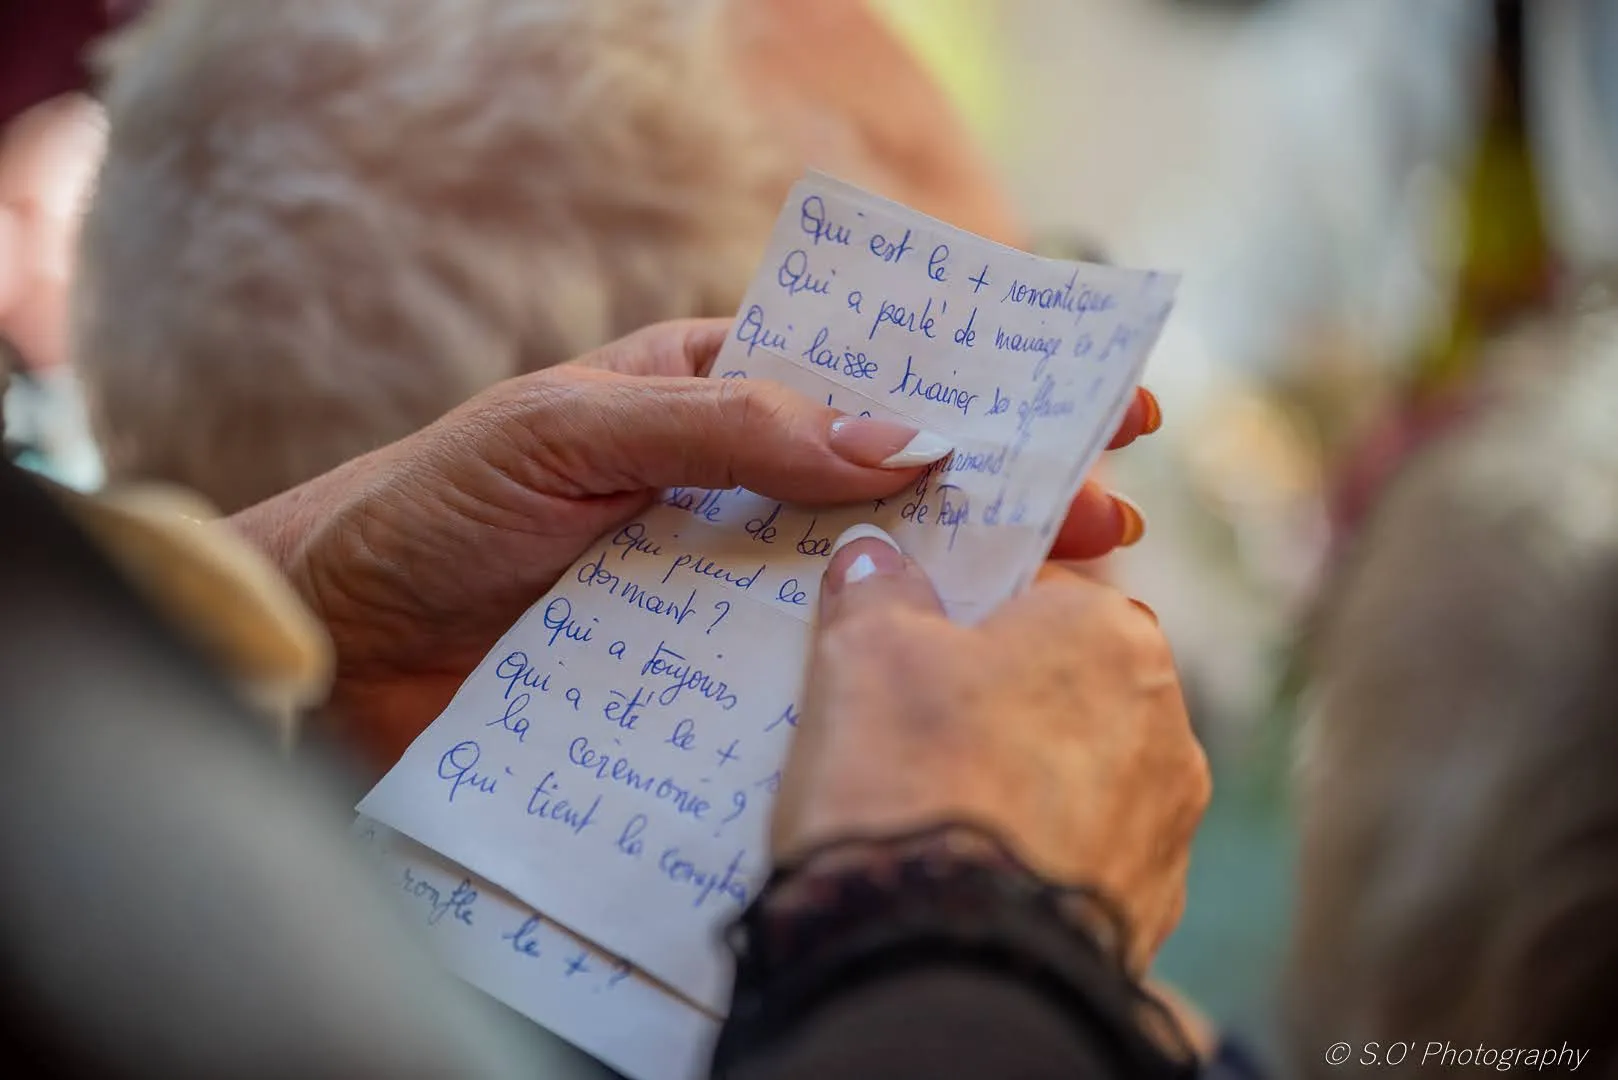 Qui est le + romantique
Qui a parlé de mariage en
Qui laisse trainer ses affaires ?
gourmand ?
salle de ba
+ de Temps
Qui prend le
dormant ?
Qui a toujours
Qui a été le +
la cérémonie ?
Qui tient la compta
ronfle le + ?
© S.O' Photography